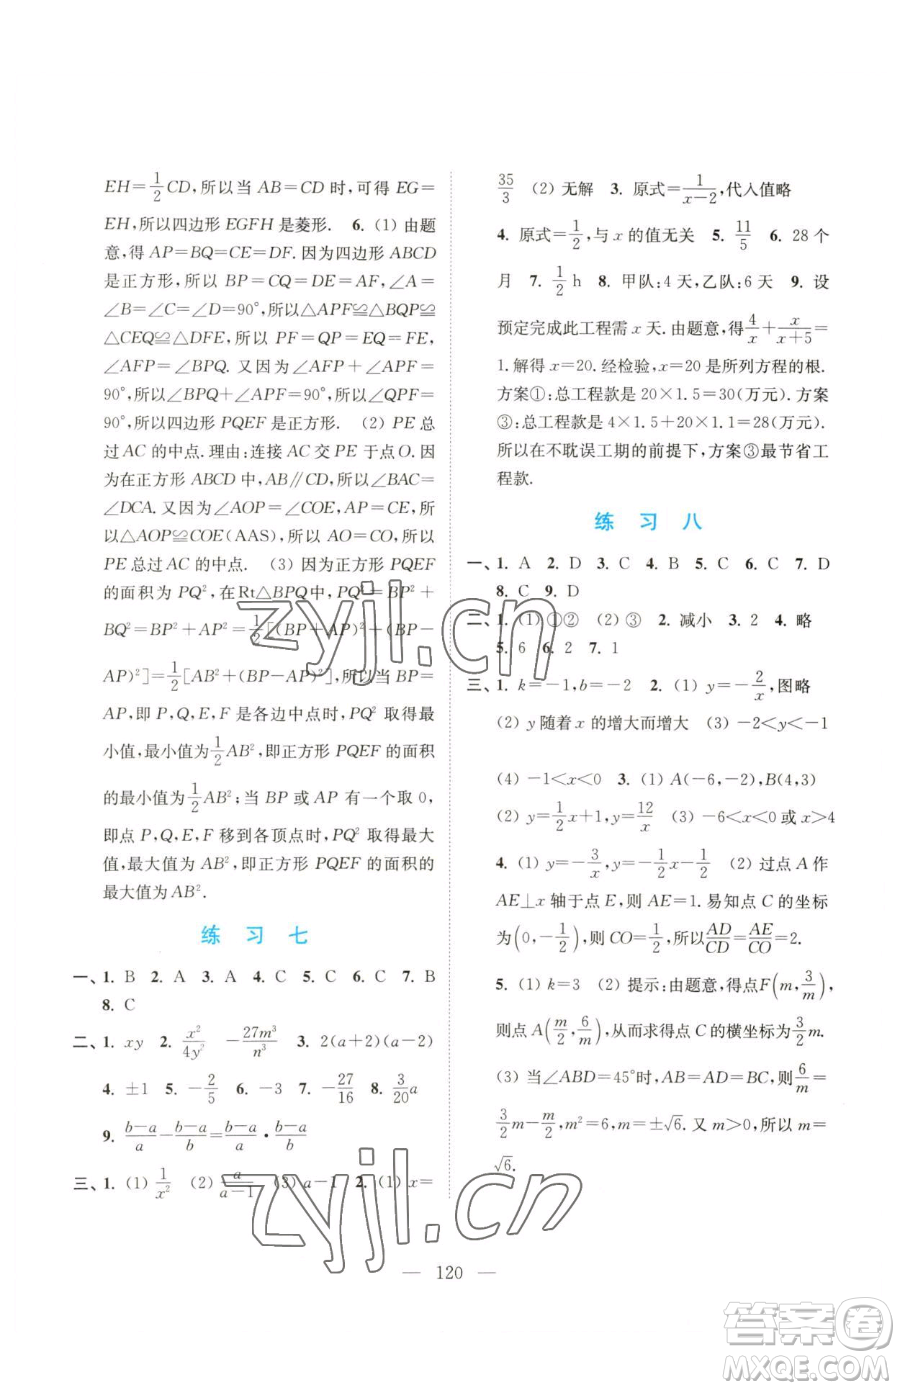 EH=1/2CD,所以当 AB=CD 时,可得 EG=
EH,所以四边形 EGFH 是菱形. 6. (1) 由题
意,得 AP=BQ=CE=DF. 因为四边形 ABCD
是正方形,所以 BP=CQ=DE=AF,∠A=
∠B=∠C=∠D=90°,所以△APF≌△BQP≌
△CEQ≌△DFE,所以 PF=QP=EQ=FE,
∠AFP=∠BPQ. 又因为∠AFP+∠APF=
90°,所以∠BPQ+∠APF=90°,所以∠QPF=
90°,所以四边形 PQEF 是正方形. (2) PE 总
过 AC 的中点. 理由:连接 AC 交 PE 于点 O. 因为
在正方形 ABCD 中,AB∥CD,所以∠BAC=
∠DCA. 又因为∠AOP=∠COE,AP=CE,所
以△AOP≌△COE(AAS),所以 AO=CO,所以
PE 总过 AC 的中点. (3) 因为正方形 PQEF
的面积为 PQ²,在 Rt△BPQ 中,PQ²=BP²+
BQ²=BP²+AP²=1/2[(BP+AP)²+(BP-
AP)²]=1/2[AB²+(BP-AP)²],所以当 BP=
AP,即 P,Q,E,F 是各边中点时,PQ² 取得最
小值,最小值为1/2AB²,即正方形 PQEF 的面积
的最小值为1/2AB²;当 BP 或 AP 有一个取 0,
即点 P,Q,E,F 移到各顶点时,PQ² 取得最大
值,最大值为 AB²,即正方形 PQEF 的面积的
最大值为 AB².
练 习 七
一、1. B 2. A 3. A 4. C 5. C 6. C 7. B
8. C
二、1. xy 2. x²/4y² -27m³/n³ 3. 2(a+2)(a-2)
4. ±1 5. -2/5 6. -3 7. -27/16 8. 3/20a
9. (b-a)/a-(b-a)/b=(b-a)/a·(b-a)/b
三、1. (1) 1/x² (2) a/(a-1) (3) a-1 2. (1) x=
35/3 (2) 无解 3. 原式=1/(x-2),代入值略
4. 原式=1/2,与 x 的值无关 5. 11/5 6. 28 个
月 7. 1/2 h 8. 甲队:4 天,乙队:6 天 9. 设
预定完成此工程需 x 天. 由题意,得4/x+x/(x+5)=
1. 解得 x=20. 经检验,x=20 是所列方程的根.
方案①:总工程款是 20×1.5=30(万元). 方案
③:总工程款是 4×1.5+20×1.1=28(万元).
所以在不耽误工期的前提下,方案③最节省工
程款.
练 习 八
一、1. A 2. D 3. C 4. B 5. C 6. C 7. D
8. C 9. D
二、1. (1) ①② (2) ③ 2. 减小 3. 2 4. 略
5. 6 6. 2 7. 1
三、1. k=-1,b=-2 2. (1) y=-2/x,图略
(2) y 随着 x 的增大而增大 (3) -2<y<-1
(4) -1<x<0 3. (1) A(-6,-2),B(4,3)
(2) y=1/2x+1,y=12/x (3) -6<x<0 或 x>4
4. (1) y=-3/x,y=-1/2x-1/2 (2) 过点 A 作
AE⊥x 轴于点 E,则 AE=1. 易知点 C 的坐标
为(0,-1/2),则 CO=1/2,所以AD/CD=AE/CO=2.
5. (1) k=3 (2) 提示:由题意,得点F(m,3/m),
则点 A(m/2,6/m),从而求得点 C 的横坐标为3/2m.
(3) 当∠ABD=45°时,AB=AD=BC,则6/m=
3/2m-m/2,m²=6,m=±√6. 又 m>0,所以 m=
√6.
— 120 —
zyjl.cn
zyjl.cn
答案圈
MXQE.COM